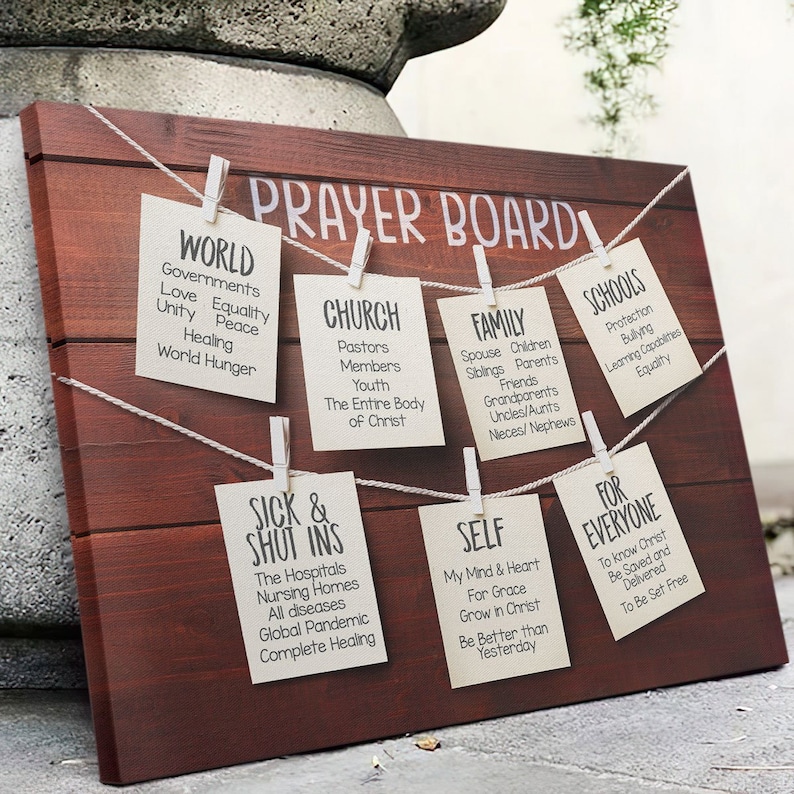 PRAYER BOARD
WORLD
Governments
Love Equality
Unity Peace
Healing
World Hunger
CHURCH
Pastors
Members
Youth
The Entire Body
of Christ
FAMILY
Spouse Children
Siblings Parents
Friends
Grandparents
Uncles/Aunts
Nieces/ Nephews
SCHOOLS
Protection
Bullying
Learning Capabilities
Equality
SICK &
SHUT INS
The Hospitals
Nursing Homes
All diseases
Global Pandemic
Complete Healing
SELF
My Mind & Heart
For Grace
Grow in Christ
Be Better than
Yesterday
FOR
EVERYONE
To know Christ
Be Saved and
Delivered
To Be Set Free